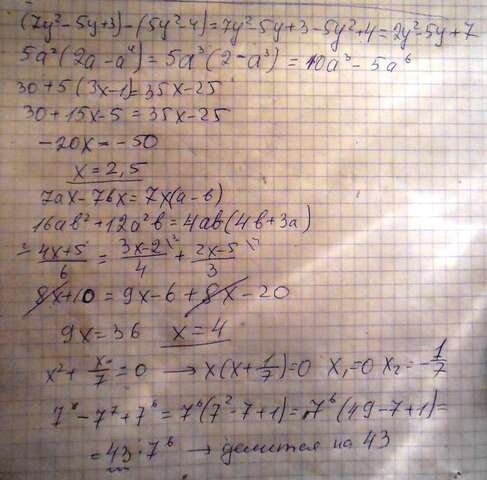 (7y²-5y+3)-(5y²-4)=7y²-5y+3-5y²+4=2y²-5y+7
5a²(2a-a⁴)=5a³(2-a³)=10a³-5a⁶
30+5(3x-1)=35x-25
30+15x-5=35x-25
-20x=-50
x=2,5
7ax-7bx=7x(a-b)
16ab²+12a²b=4ab(4b+3a)
4x+5/6=3x-2/4+2x-5/3
8x+10=9x-6+8x-20
9x=36 x=4
x²+x/7=0 →x(x+1/7)=0 x₁=0 x₂=-1/7
7⁸-7⁷+7⁶=7⁶(7²-7+1)=7⁶(49-7+1)=
=43·7⁶ → делится на 43